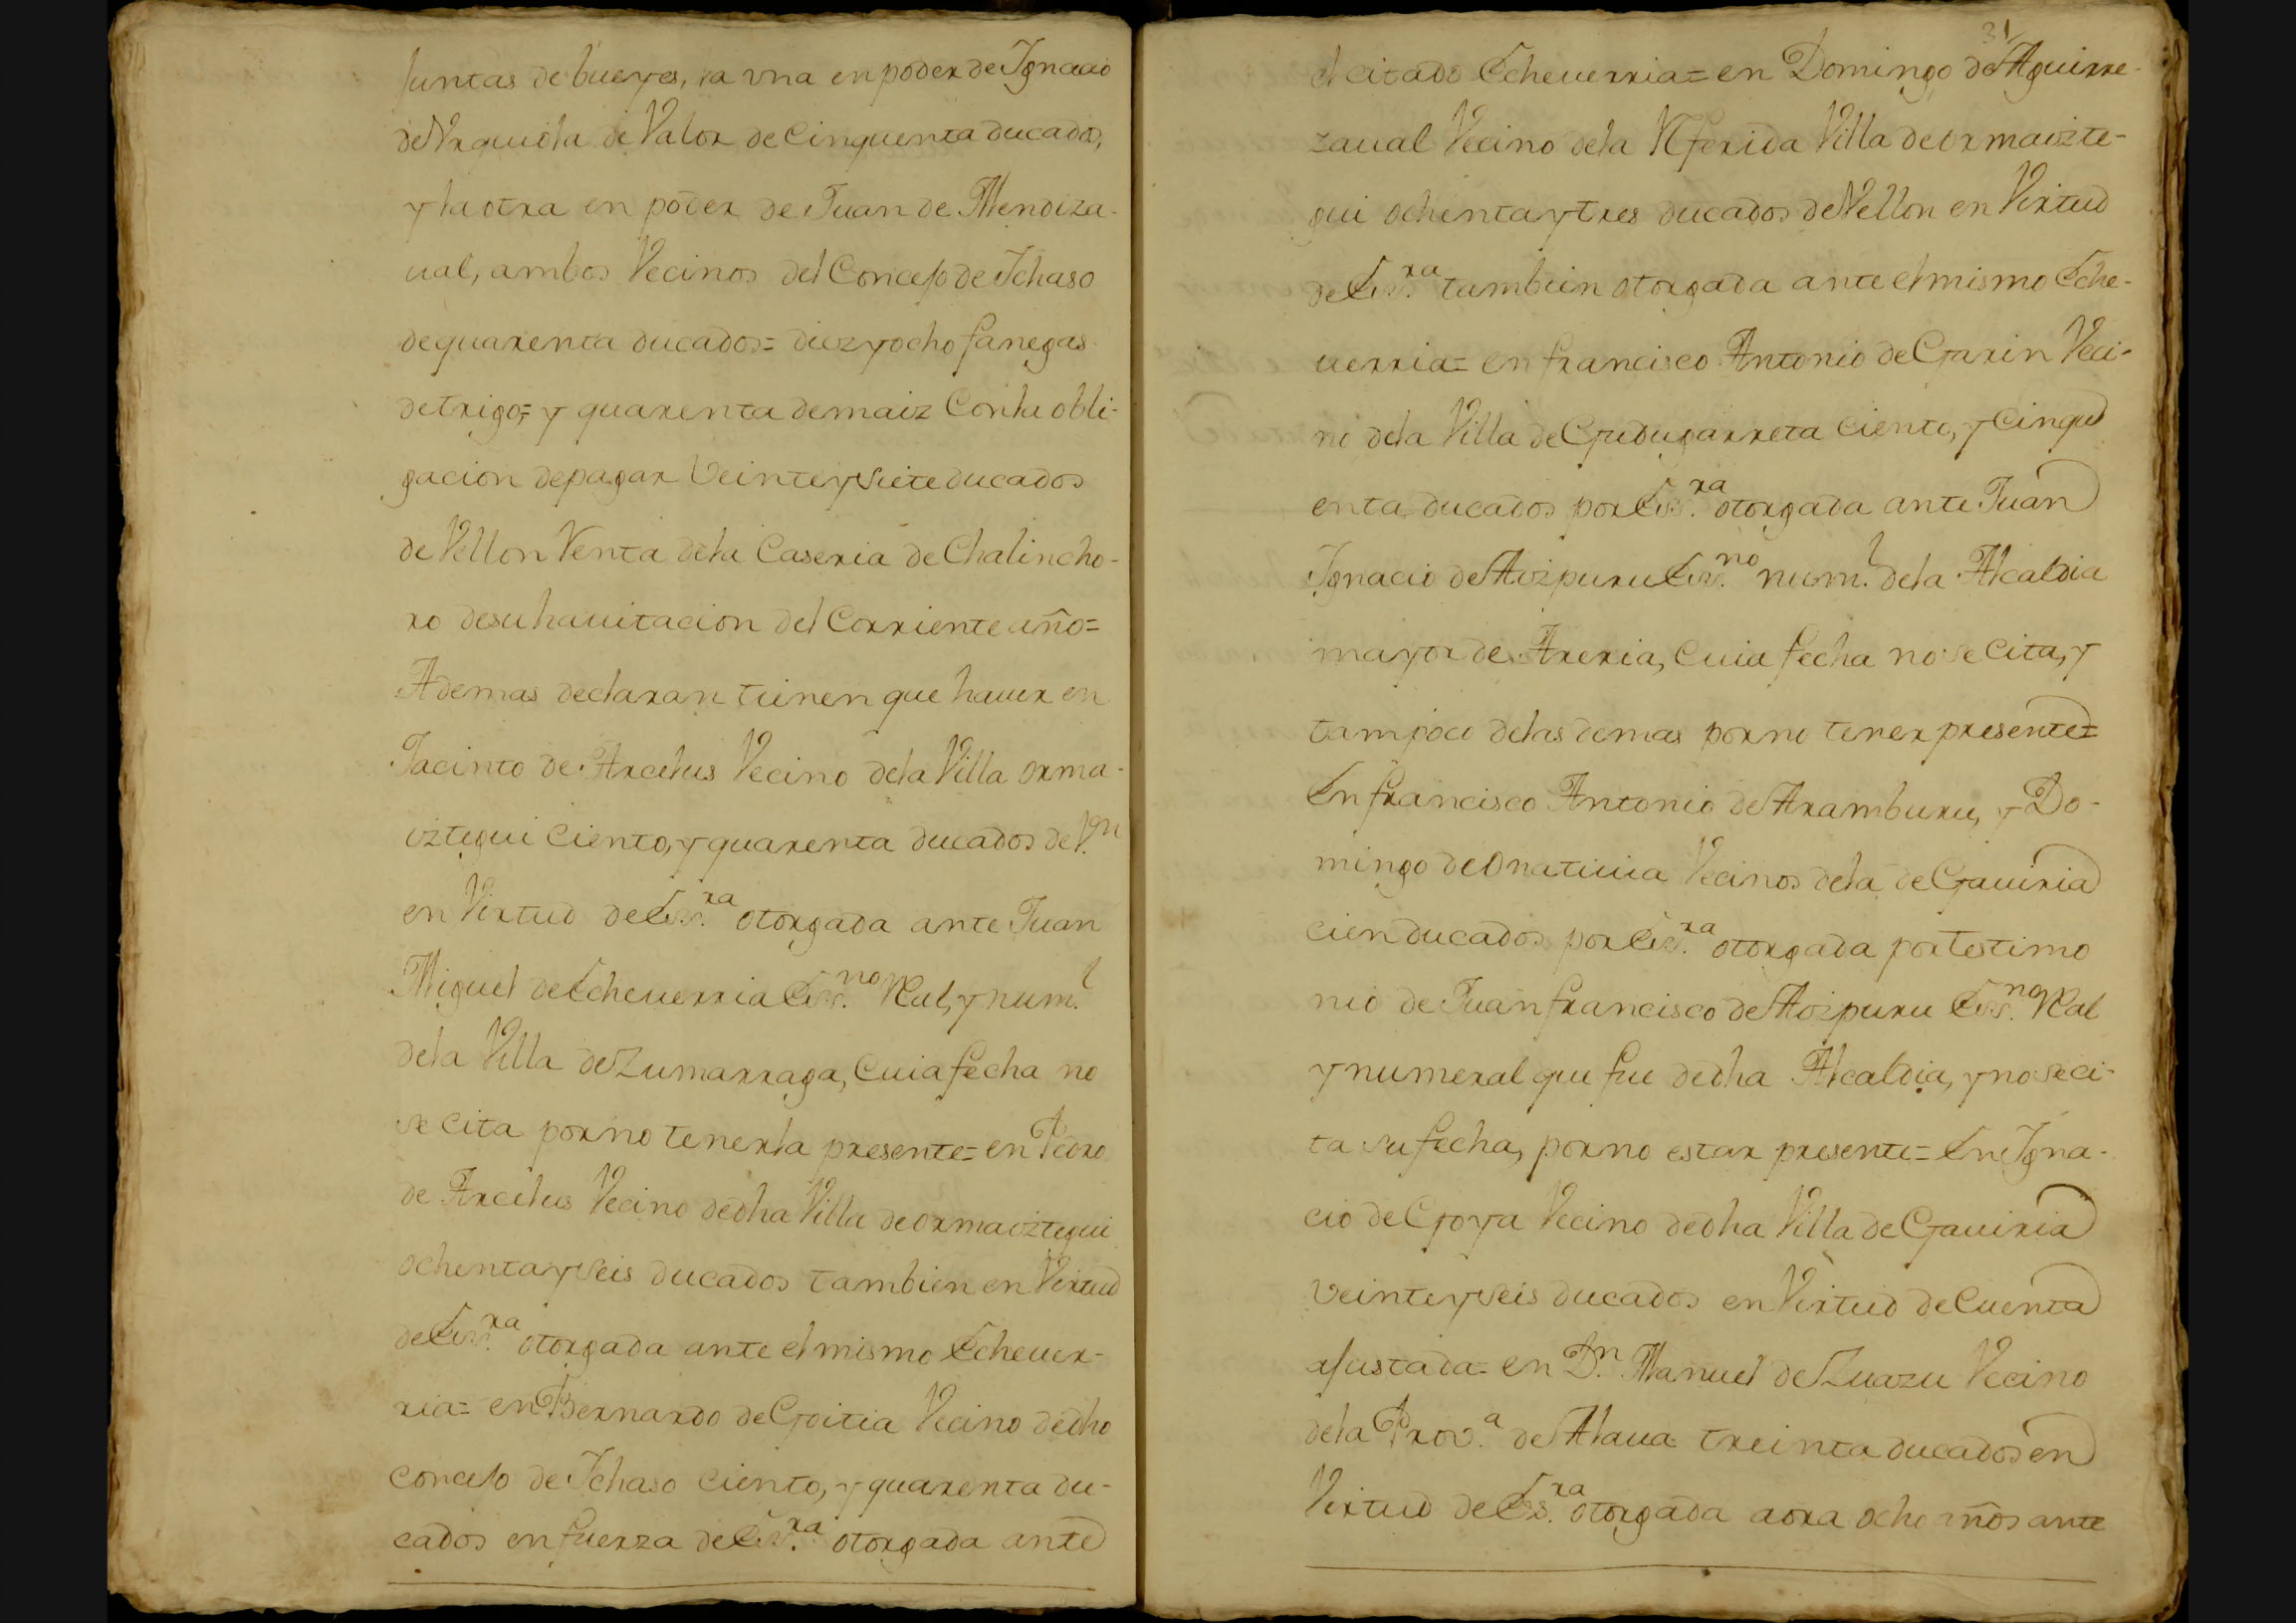 Juntas de bueyes, la vna en poder de Ignacio
de Vrquiola de Valor de Cinquenta ducados,
y la otra en poder de Juan de Mendiza-
ual, ambos Vecinos del Concejo de Ichaso
de quarenta ducados= diez y ocho fanegas
de trigo,= y quarenta de maiz Con la obli-
gacion de pagar Veinte y siete ducados
de Vellon Renta de la Caseria de Chalincho-
ro de su hauitacion del Corriente año=
Ademas declaran tienen que hauer en
Jacinto de Arcelus Vecino de la Villa orma-
iztegui Ciento, y quarenta ducados de V.on
en Virtud de Ess.ra otorgada ante Juan
Miguel de Echeuerria Ess.no Real, y num.l
de la Villa de Zumarraga, Cuia fecha no
se cita por no tenerla presente= en Pedro
de Arcelus Vecino de dha Villa de ormaiztegui
ochenta y seis ducados tambien en Virtud
de Ess.ra otorgada ante el mismo Echeuer-
ria= en Bernardo de Goitia Vecino de dho
concejo de Ichaso ciento, y quarenta du-
cados en fuerza de Ess.ra otorgada ante
31
el citado Echeuerria= en Domingo de Aguirre-
zaual Vecino de la Referida Villa de ormaizte-
gui ochenta y tres ducados de Vellon en Virtud
de Ess.ra tambien otorgada ante el mismo Eche-
uerria= en francisco Antonio de Garin Veci-
no de la Villa de Gudugarreta ciento, y Cinqu
enta ducados por Ess.ra otorgada ante Juan
Ignacio de Aizpuru Ess.no num.l de la Alcaldia
mayor de Areria, Cuia fecha no se Cita, y
tampoco de las demas por no tener presente=
En francisco Antonio de Aramburu, y Do-
mingo de Onatiuia Vecinos de la de Gauiria
cien ducados por Ess.ra otorgada por testimo
nio de Juan francisco de Aizpuru Ess.no Real
y numeral que fue de dha Alcaldia, y no se ci-
ta su fecha, por no estar presente= En Igna-
cio de Goya Vecino de dha Villa de Gauiria
Veinte y seis ducados en Virtud de Cuenta
ajustada= en D.n Manuel de Zuazu Vecino
de la Prov.a de Alaua treinta ducados en
Virtud de Ess.ra otorgada aora ocho años ante